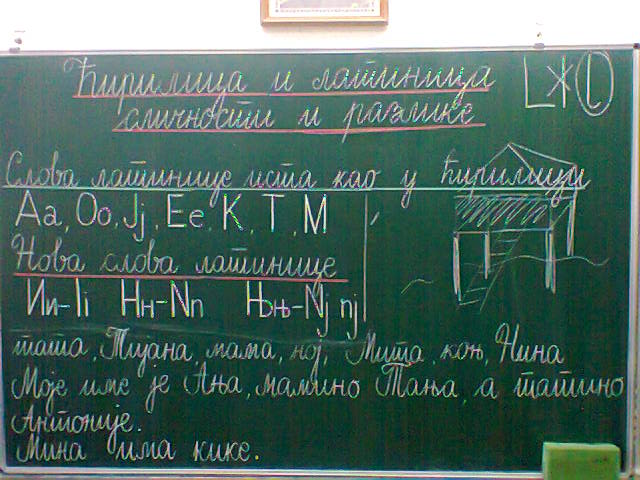 Ћирилица и латиница
сличности и разлике
Слова латинице иста као у ћирилици
Аа, Оо, Јј, Ее, К, Т, М
Нова слова латинице
Ии-Ii Нн-Nn Њњ-Nj nj
тата, Тијана, мама, ној, Мита, коњ, Нина
Моје име је Ања, мамино Тања, а татино
Антоније.
Мина има кике.